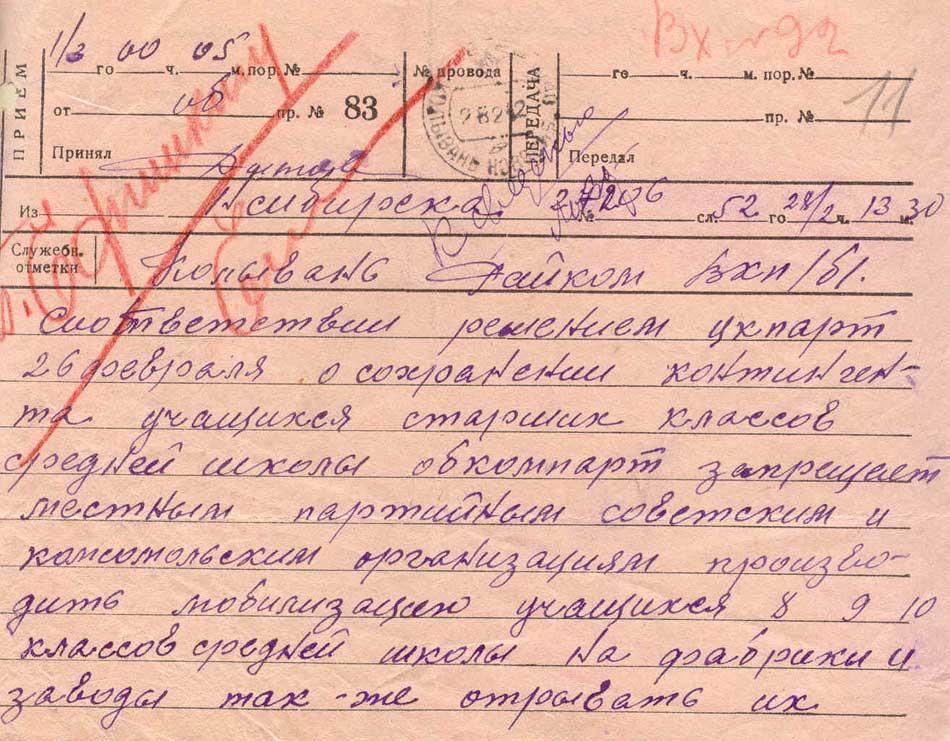 Вх №92
11
1/3 00 05
ПРИЕМ
го ч. м. пор. №
№ провода
ПЕРЕДАЧА
го ч. м. пор. №
от об пр. № 83
пр. №
Принял
Передал
Из Н сибирска № сл. 52 го 28/2 ч. 13 30 м.
Служебн.
отметки
Колывань Райком ВКП/б/.
Соответствии решением цкпарт
26 февраля о сохранении континген-
та учащихся старших классов
средней школы обкомпарт запрещает
местным партийным советским и
комсомольским организациям произво-
дить мобилизацию учащихся 8 9 10
классов средней школы на фабрики и
заводы так-же отрывать их